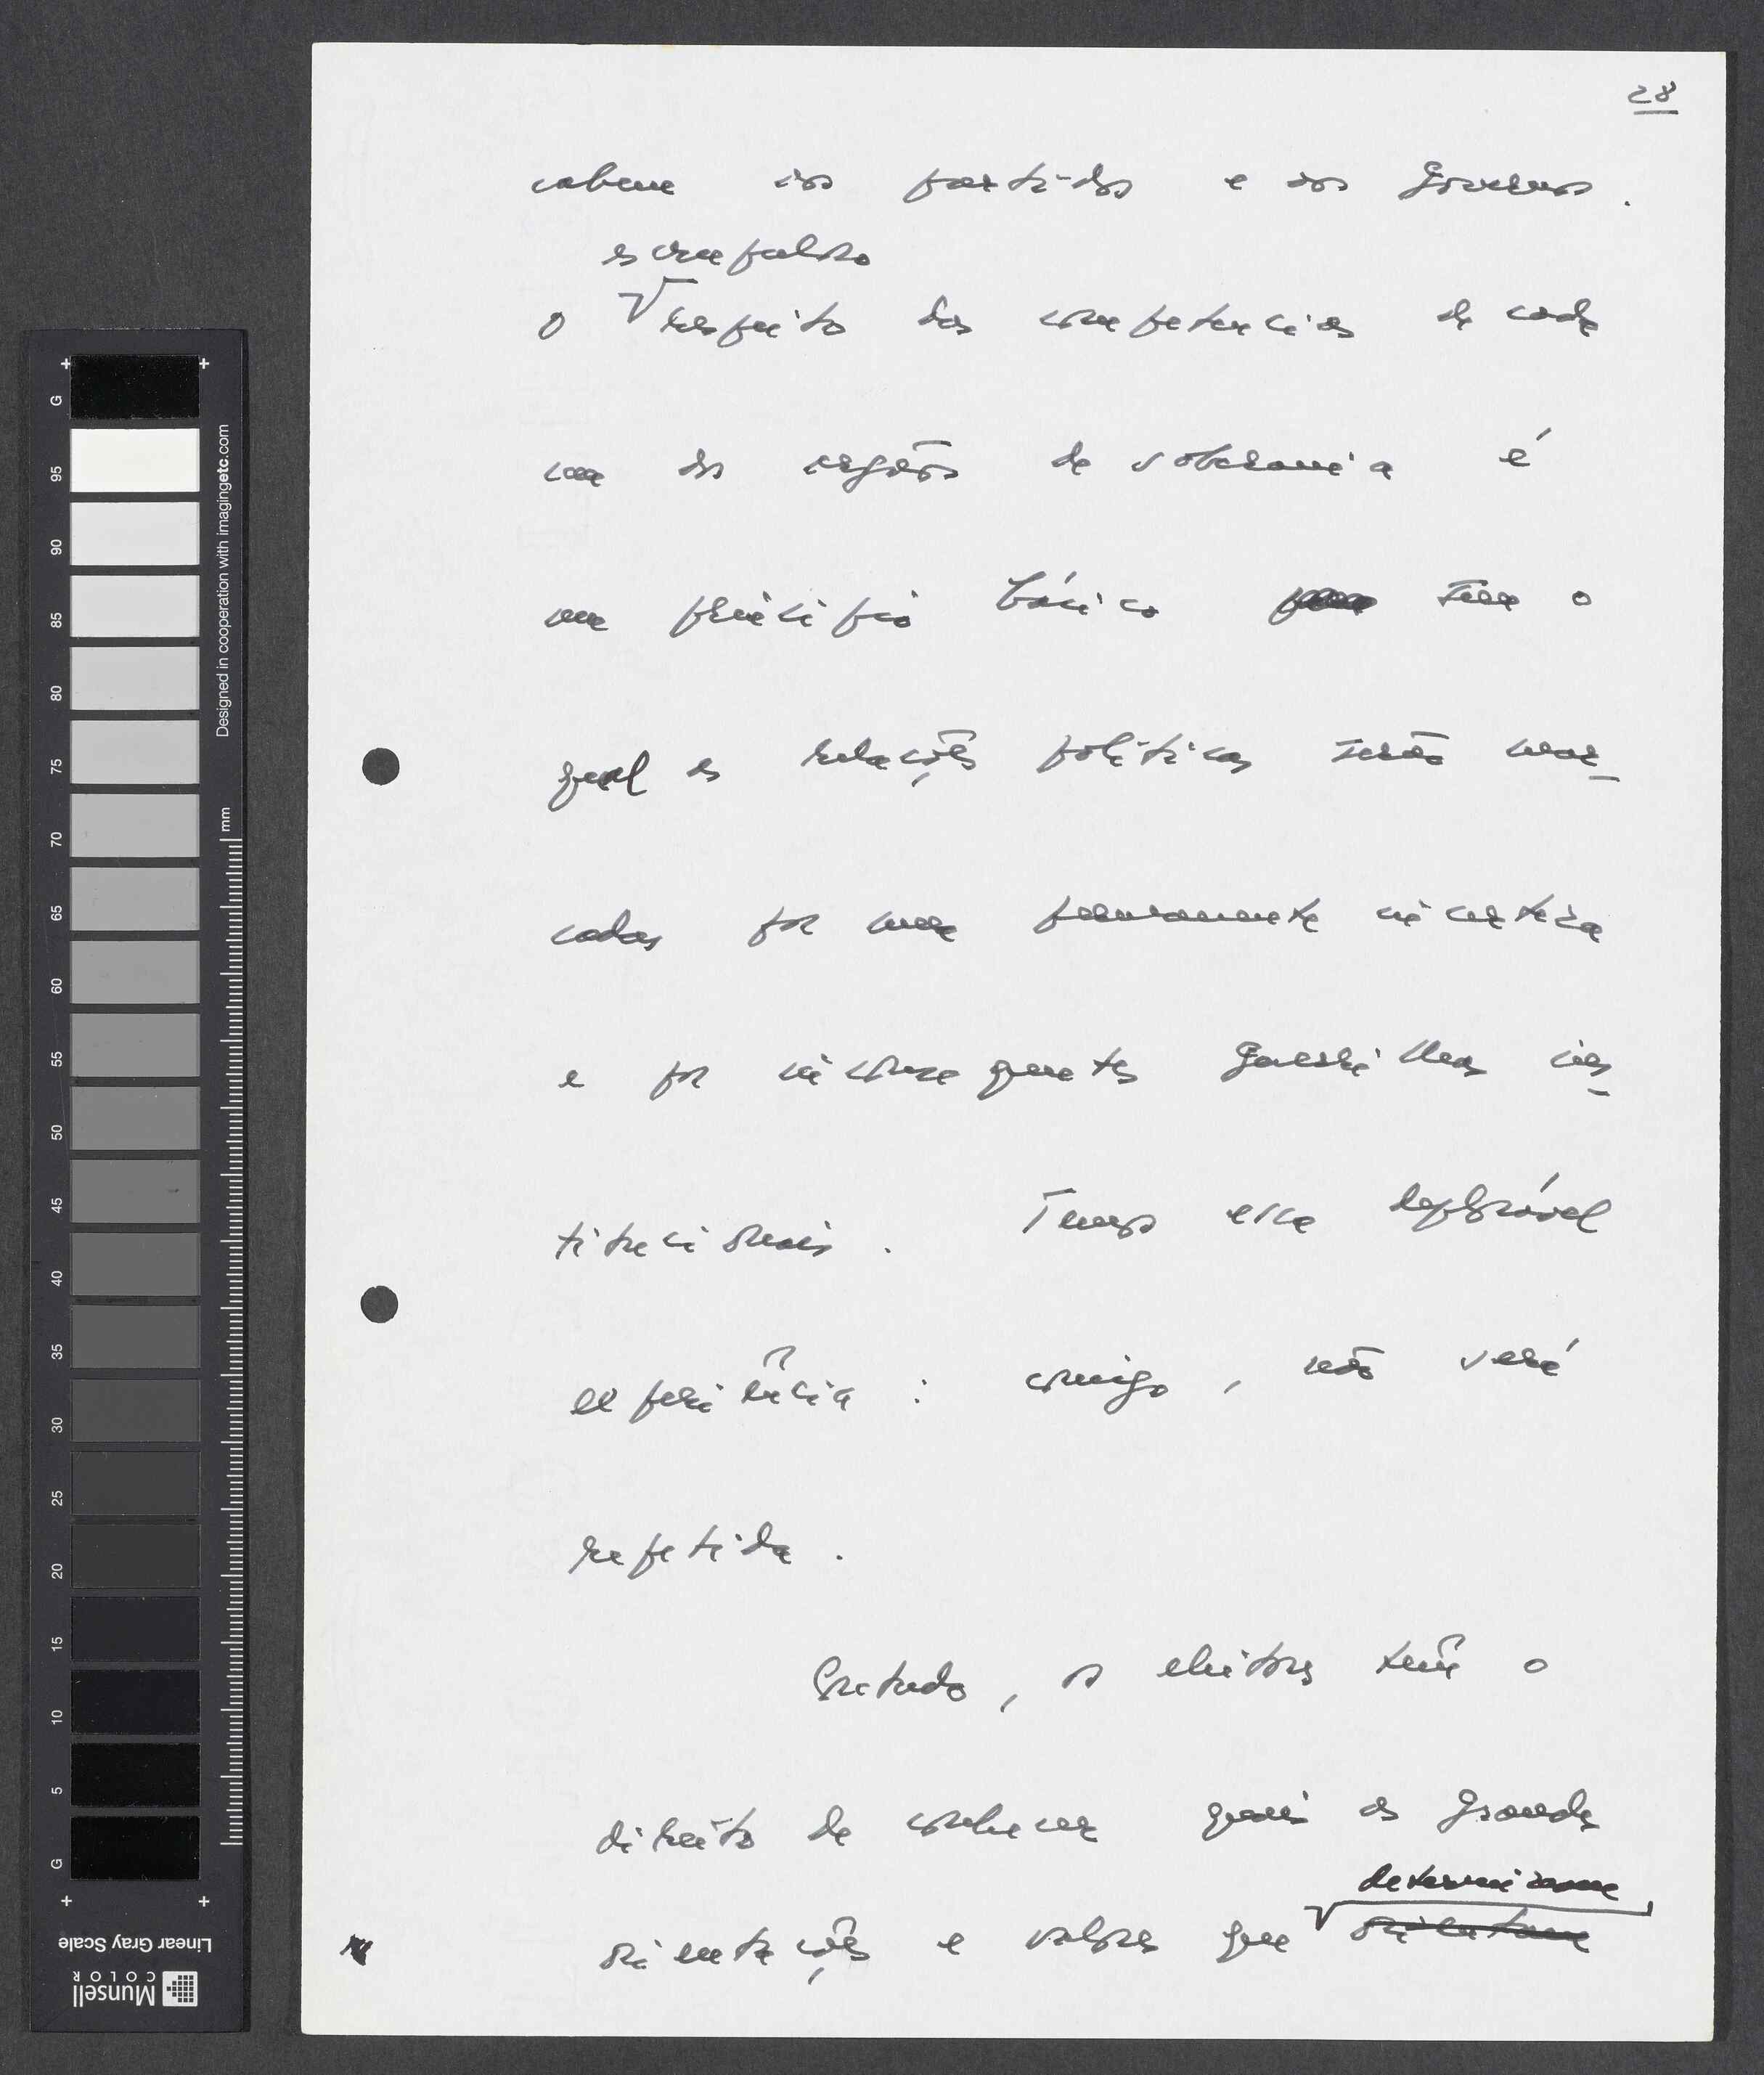 28
cabem aos partidos e aos Governos.
escrupuloso
O respeito das competências de cada
um dos orgãos de soberania é
um princípio básico sem o
qual as relações políticas serão mar-
cadas por uma permanente incerteza
e por inconsequentes guerrilhas ins-
titucionais. Temos essa deplorável
experiência: comigo, não será
repetida.
Contudo, os eleitores têm o
direito de conhecer quais as grandes
determinam
orientações e valores que orientam
G
95
90
85
80
75
70
65
60
55
50
45
40
35
30
25
20
15
10
5
G
Designed in cooperation with imagingetc.com
mm
Linear Gray Scale
Munsell
COLOR